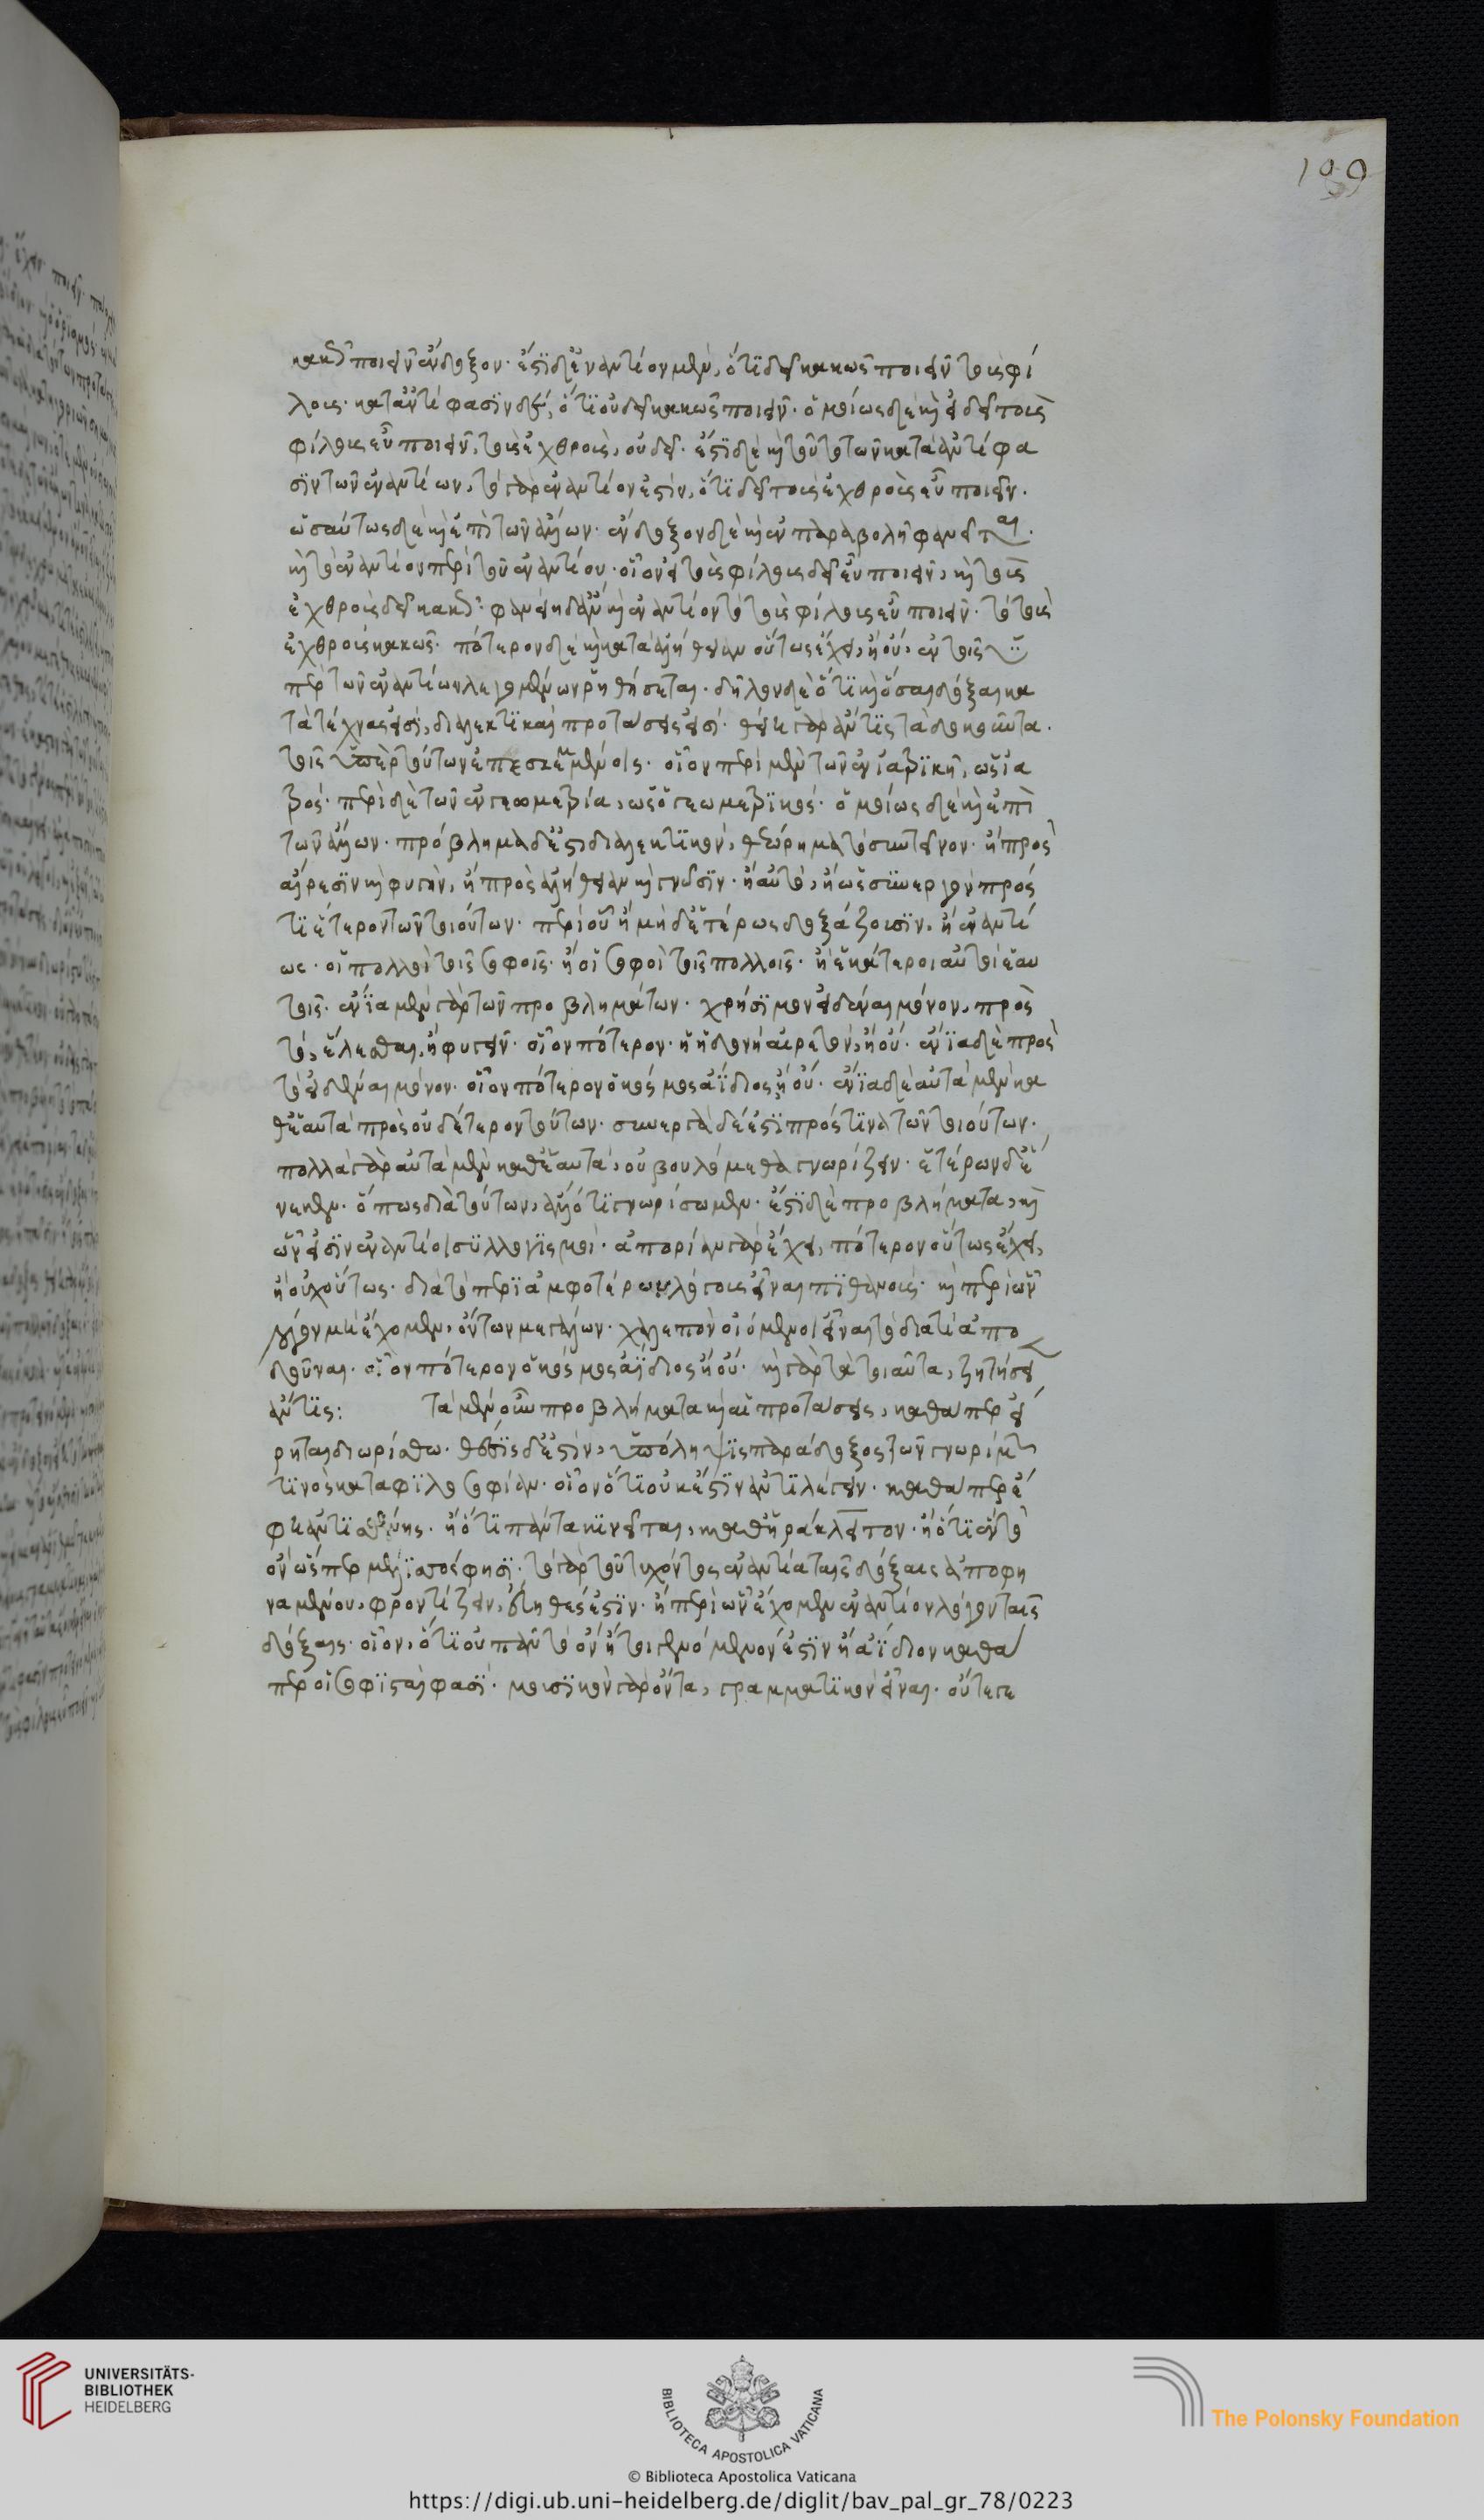 κακῶς ποιεῖν ἔνδοξον· ἔστι δὲ ἐναντίον μὲν, ὅτι δεῖ κακῶς ποιεῖν τοὺς φί
λους· κατ' ἀντίφασιν δὲ, ὅτι οὐ δεῖ κακῶς ποιεῖν· ὁμοίως δὲ καὶ εἰ δεῖ τοὺς
φίλους εὖ ποιεῖν, τοὺς ἐχθροὺς, οὐ δεῖ· ἔστι δὲ καὶ τοῦτο τῶν κατὰ ἀντίφα
σιν τῶν ἐναντίων, τὸ γὰρ ἐναντίον ἐστὶν, ὅτι δεῖ τοὺς ἐχθροὺς εὖ ποιεῖν·
ὡσαύτως δὲ καὶ ἐπὶ τῶν ἄλλων· ἔνδοξον δὲ καὶ ἐν παραβολῇ φανεῖται·
καὶ τὸ ἐναντίον περὶ τοῦ ἐναντίου· οἷον εἰ τοὺς φίλους δεῖ εὖ ποιεῖν, καὶ τοὺς
ἐχθροὺς δεῖ κακῶς· φανείη δ' ἂν καὶ ἐναντίον τὸ τοὺς φίλους εὖ ποιεῖν· τὸ τοὺς
ἐχθροὺς κακῶς· πότερον δὲ καὶ κατὰ ἀλήθειαν οὕτως ἔχει, ἢ οὔ, ἐν τοῖς ὑ
πὲρ τῶν ἐναντίων λεγομένων ῥηθήσεται· δῆλον δὲ ὅτι καὶ ὅσαι δόξαι κα
τὰ τέχνας εἰσὶ, διαλεκτικαὶ προτάσεις εἰσί· θείη γὰρ ἄν τις τὰ δοκοῦντα·
τοῖς ὑπὲρ τούτων ἐπεσκεμμένοις· οἷον περὶ μὲν τῶν ἐν ἰατρικῇ, ὡς ἰα
τρός· περὶ δὲ τῶν ἐν γεωμετρία, ὡς ὁ γεωμετρικός· ὁμοίως δὲ καὶ ἐπὶ
τῶν ἄλλων· πρόβλημα δ' ἐστὶ διαλεκτικὸν, θεώρημα τὸ συντεῖνον· ἢ πρὸς
αἵρεσιν καὶ φυγὴν, ἢ πρὸς ἀλήθειαν καὶ γνῶσιν· ἢ αὐτὸ, ἢ ὡς συνεργὸν πρός
τι ἕτερον τῶν τοιούτων· περὶ οὗ ἢ μηδετέρως δοξάζουσιν, ἢ ἐναντί
ως· οἱ πολλοὶ τοῖς σοφοῖς· ἢ οἱ σοφοὶ τοῖς πολλοῖς· ἢ ἑκάτεροι αὐτοὶ ἑαυ
τοῖς· ἔνια μὲν γὰρ τῶν προβλημάτων· χρήσιμον εἰδέναι μόνον, πρὸς
τὸ, ἑλέσθαι, ἢ φυγεῖν· οἷον πότερον· ἡ ἡδονὴ αἱρετὸν, ἢ οὔ· ἔνια δὲ πρὸς
τὸ εἰδέναι μόνον· οἷον πότερον ὁ κόσμος ἀΐδιος ἢ οὔ· ἔνια δὲ αὐτὰ μὲν κα
θ' ἑαυτὰ πρὸς οὐδέτερον τούτων· συνεργὰ δέ ἐστι πρός τινα τῶν τοιούτων·
πολλὰ γὰρ αὐτὰ μὲν καθ' ἑαυτὰ, οὐ βουλόμεθα γνωρίζειν· ἑτέρων δ' ἕ
νεκεν· ὅπως διὰ τούτων, ἄλλό τι γνωρίσωμεν· ἔστι δὲ προβλήματα, καὶ
ὧν εἰσὶν ἐναντίοι συλλογισμοί· ἀπορίαν γὰρ ἔχει, πότερον οὕτως ἔχει,
ἢ οὐχ οὕτως· διὰ τὸ περὶ ἀμφοτέρων λόγους εἶναι πιθανούς· καὶ περὶ ὧν
λόγον μὴ ἔχομεν, ὄντων μεγάλων· χαλεπὸν οἰόμενοι εἶναι τὸ διατί ἀπο
δοῦναι· οἷον πότερον ὁ κόσμος ἀΐδιος ἢ οὔ· καὶ γὰρ τὰ τοιαῦτα, ζητήσει
ἄν τις: Τὰ μὲν οὖν προβλήματα καὶ αἱ προτάσεις, καθάπερ εἴ
ρηται διωρίσθω· θέσις δ' ἐστὶν, ὑπόληψις παράδοξος τῶν γνωρίμων
τινὸς κατὰ φιλοσοφίαν· οἷον ὅτι οὐκ ἔστιν ἀντιλέγειν· καθάπερ ἔ
φη ἀντισθένης· ἢ ὅτι πάντα κινεῖται, καθ' ἡράκλειτον· ἢ ὅτι ἓν τὸ
ὄν ὥσπερ μέλισσός φησι· τὸ γὰρ τοῦ τυχόντος ἐναντία ταῖς δόξαις ἀποφη
ναμένου, φροντίζειν, εὔηθές ἐστιν· ἢ περὶ ὧν ἔχομεν ἐναντίον λόγον ταῖς
δόξαις· οἷον, ὅτι οὐ πᾶν τὸ ὂν ἤτοι γενόμενόν ἐστιν ἢ ἀΐδιον καθά
περ οἱ σοφισταί φασι· μουσικὸν γὰρ ὄντα, γραμματικὸν εἶναι· οὔτε γε
UNIVERSITÄTS-
BIBLIOTHEK
HEIDELBERG
BIBLIOTECA APOSTOLICA VATICANA
The Polonsky Foundation
© Biblioteca Apostolica Vaticana
https://digi.ub.uni-heidelberg.de/diglit/bav_pal_gr_78/0223